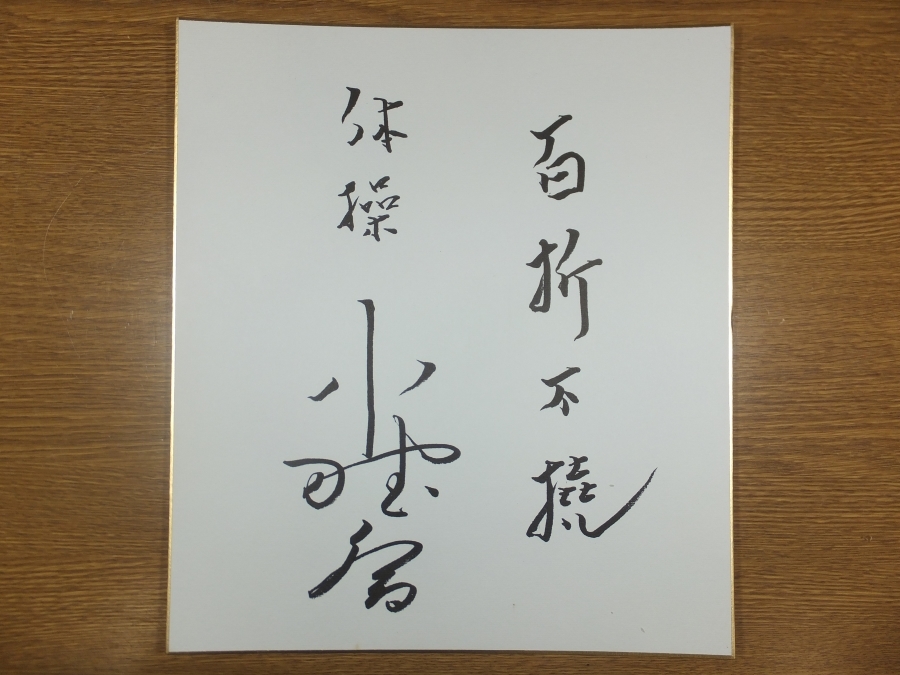 百折不撓
体操
小野喬